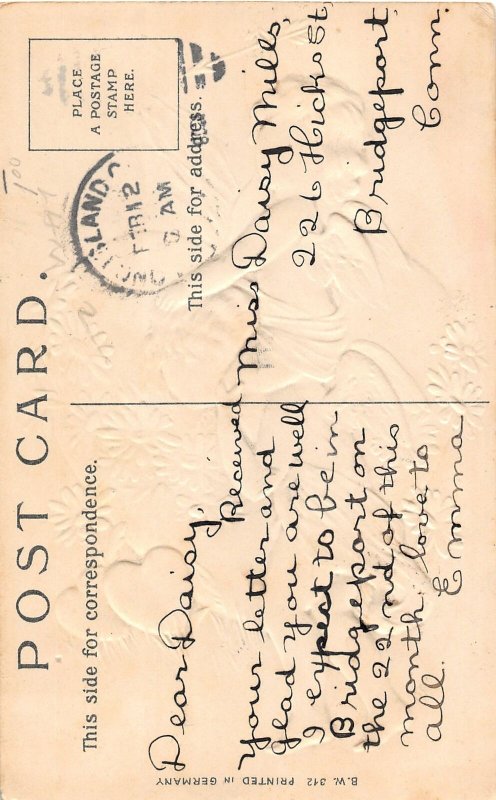 POST CARD.
This side for correspondence.
This side for address.
PLACE
A POSTAGE
STAMP
HERE.
ISLAND
FEB 12
AM
1 00
Dear Daisy,
Received
your letter and
glad you are well
I expect to be in
Bridgeport on
the 22nd of this
month love to
all. Emma
Miss Daisy Mills,
226 Hicks St
Bridgeport,
Conn.
B.W. 312 PRINTED IN GERMANY